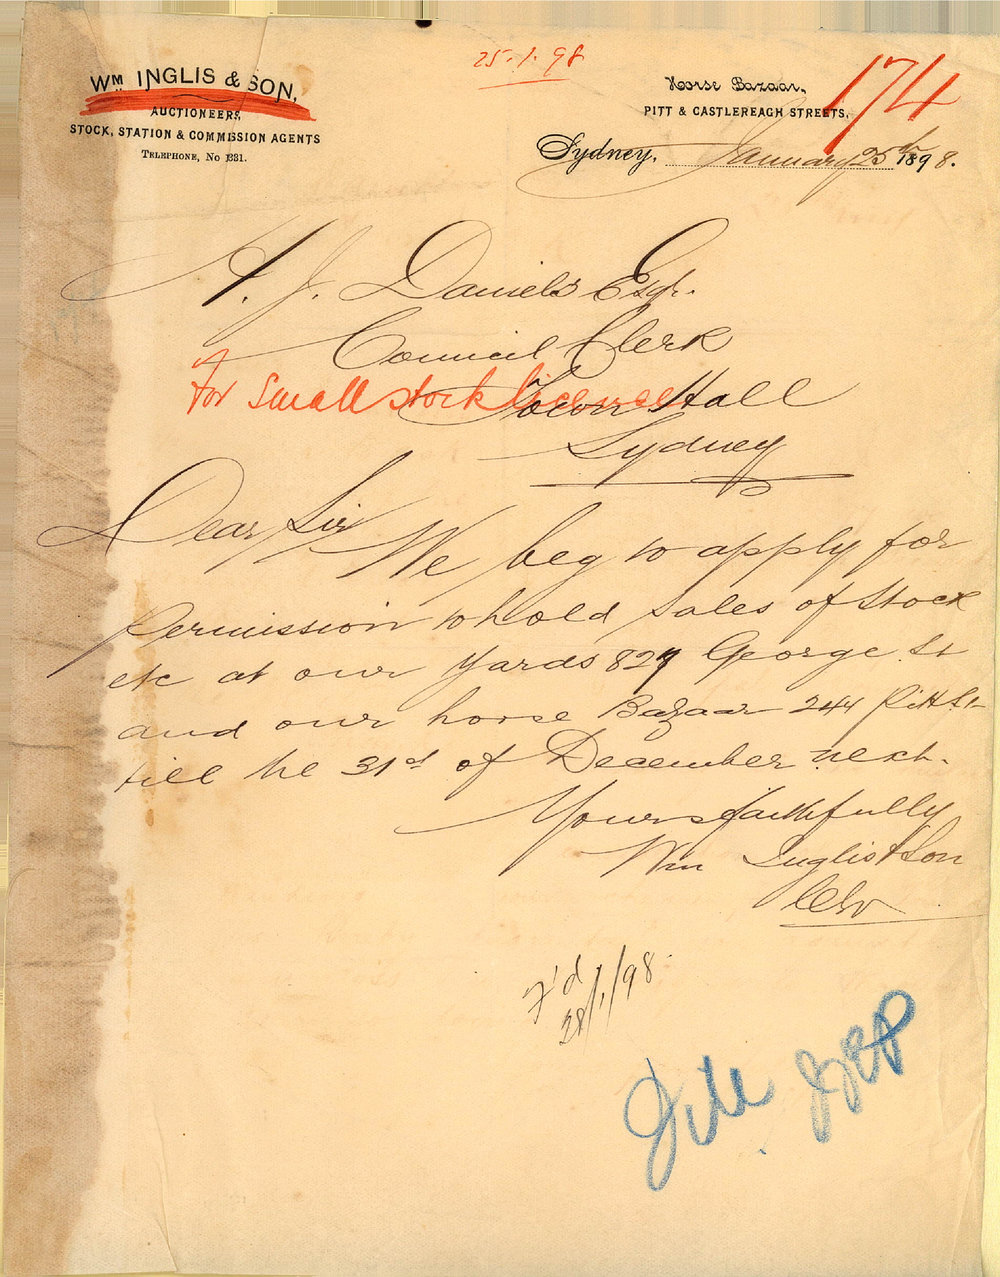 25.1.98
WM. INGLIS & SON,
AUCTIONEERS,
STOCK, STATION & COMMISSION AGENTS
TELEPHONE, No 1331.
Horse Bazaar,
PITT & CASTLEREAGH STREETS,
174
Sydney, January 25th 1898.
H. J. Daniels Esqr.
Council Clerk
Town Hall
for Small stock license
Sydney
Dear Sir We beg to apply for
permission to hold sales of Stock
etc at our Yards 827 George St
and our horse Bazaar 244 Pitt St
till the 31st of December next.
Yours faithfully
Wm Inglis & Son
F'd
28/1/98